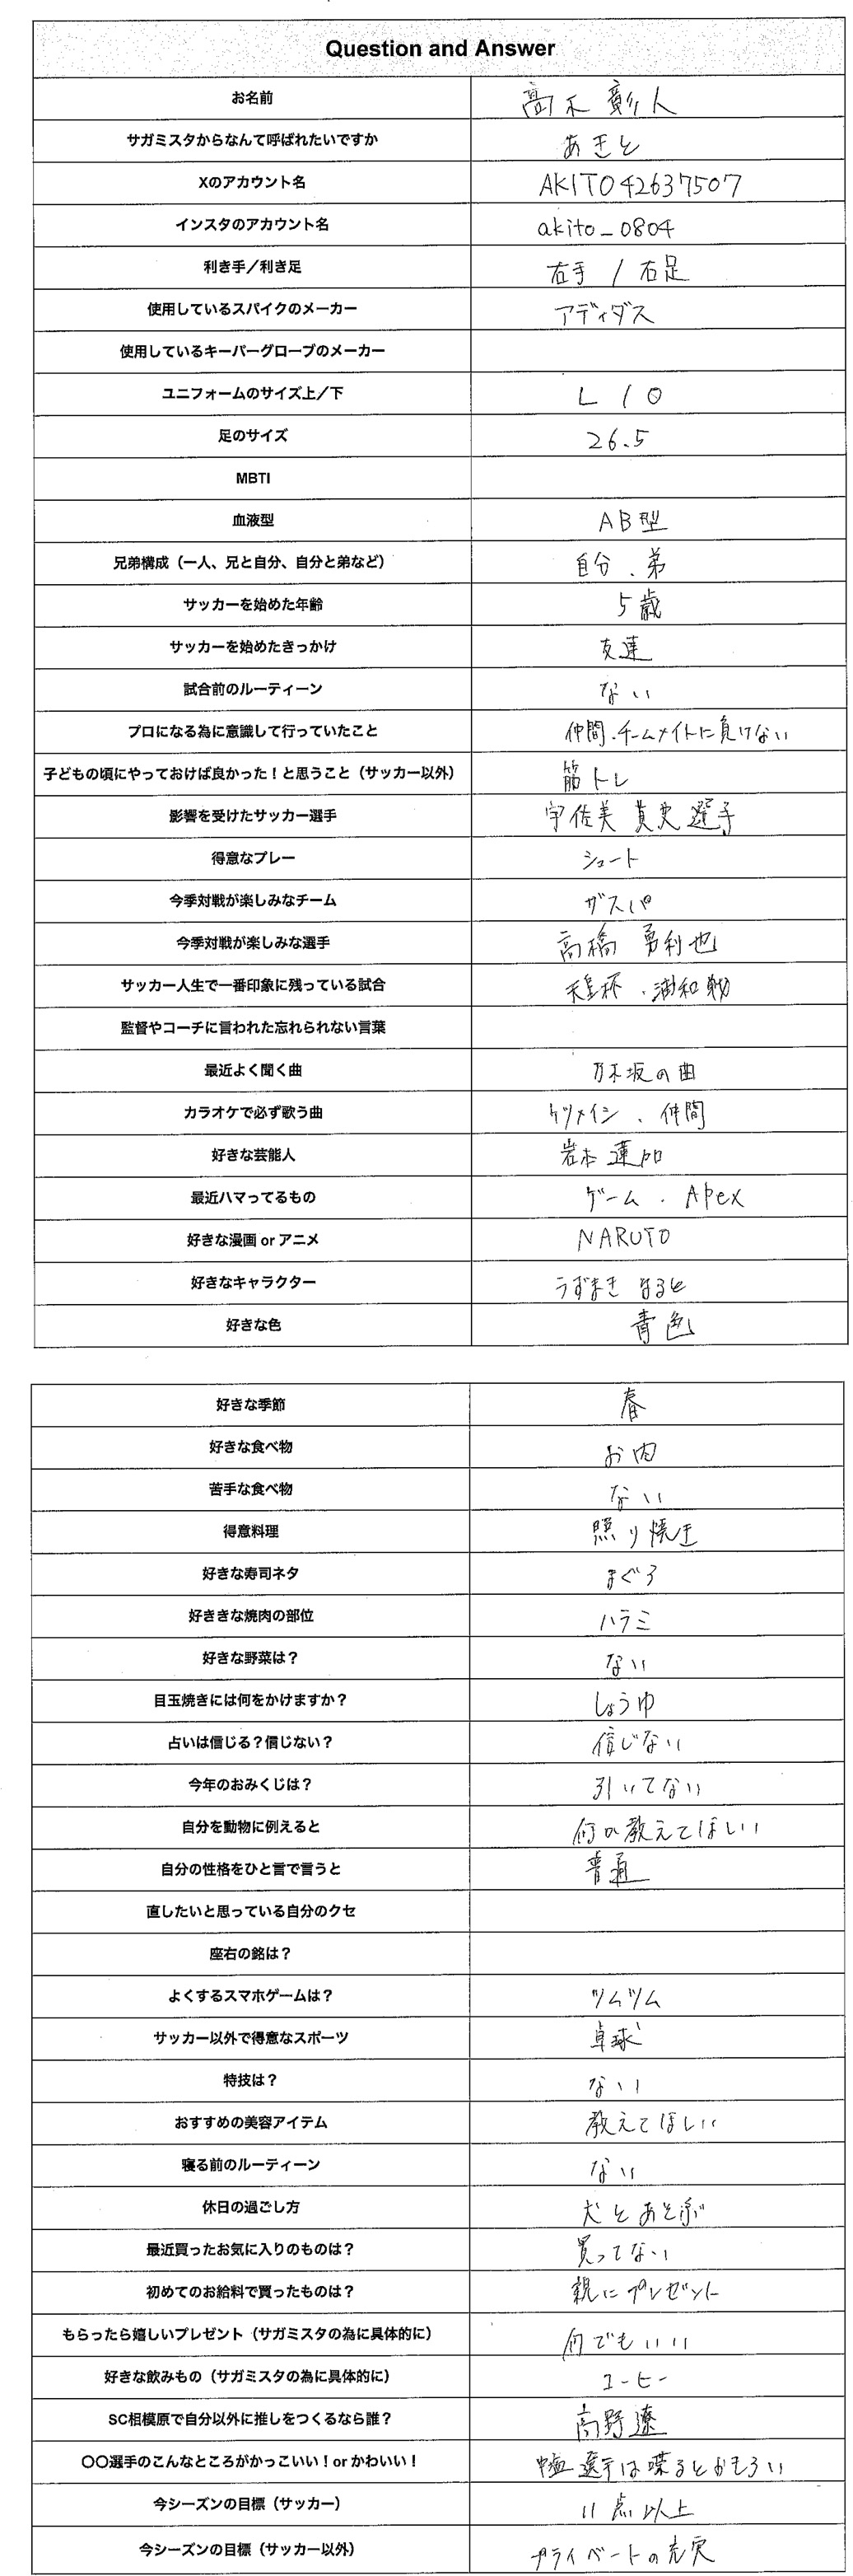 Question and Answer
お名前 髙木 彰人
サガミスタからなんて呼ばれたいですか あきと
Xのアカウント名 AKITO42637507
インスタのアカウント名 akito_0804
利き手／利き足 右手 / 右足
使用しているスパイクのメーカー アディダス
使用しているキーパーグローブのメーカー
ユニフォームのサイズ上／下 L / O
足のサイズ 26.5
MBTI
血液型 AB型
兄弟構成（一人、兄と自分、自分と弟など） 自分、弟
サッカーを始めた年齢 5歳
サッカーを始めたきっかけ 友達
試合前のルーティーン ない
プロになる為に意識して行っていたこと 仲間、チームメイトに負けない
子どもの頃にやっておけば良かった！と思うこと（サッカー以外） 筋トレ
影響を受けたサッカー選手 宇佐美 貴史 選手
得意なプレー シュート
今季対戦が楽しみなチーム ザスパ
今季対戦が楽しみな選手 高橋 勇利也
サッカー人生で一番印象に残っている試合 天皇杯、浦和戦
監督やコーチに言われた忘れられない言葉
最近よく聞く曲 乃木坂の曲
カラオケで必ず歌う曲 ケツメイシ、仲間
好きな芸能人 岩本 蓮加
最近ハマってるもの ゲーム、Apex
好きな漫画 or アニメ NARUTO
好きなキャラクター うずまき なると
好きな色 青色
好きな季節 春
好きな食べ物 お肉
苦手な食べ物 ない
得意料理 照り焼き
好きな寿司ネタ まぐろ
好ききな焼肉の部位 ハラミ
好きな野菜は？ ない
目玉焼きには何をかけますか？ しょうゆ
占いは信じる？信じない？ 信じない
今年のおみくじは？ 引いてない
自分を動物に例えると 何か教えてほしい
自分の性格をひと言で言うと 普通
直したいと思っている自分のクセ
座右の銘は？
よくするスマホゲームは？ ツムツム
サッカー以外で得意なスポーツ 卓球
特技は？ ない
おすすめの美容アイテム 教えてほしい
寝る前のルーティーン ない
休日の過ごし方 犬とあそぶ
最近買ったお気に入りのものは？ 買ってない
初めてのお給料で買ったものは？ 親にプレゼント
もらったら嬉しいプレゼント（サガミスタの為に具体的に） 何でもいい
好きな飲みもの（サガミスタの為に具体的に） コーヒー
SC相模原で自分以外に推しをつくるなら誰？ 高野 遼
〇〇選手のこんなところがかっこいい！or かわいい！ 中塩 選手は喋るとおもろい
今シーズンの目標（サッカー） 11点以上
今シーズンの目標（サッカー以外） プライベートの充実